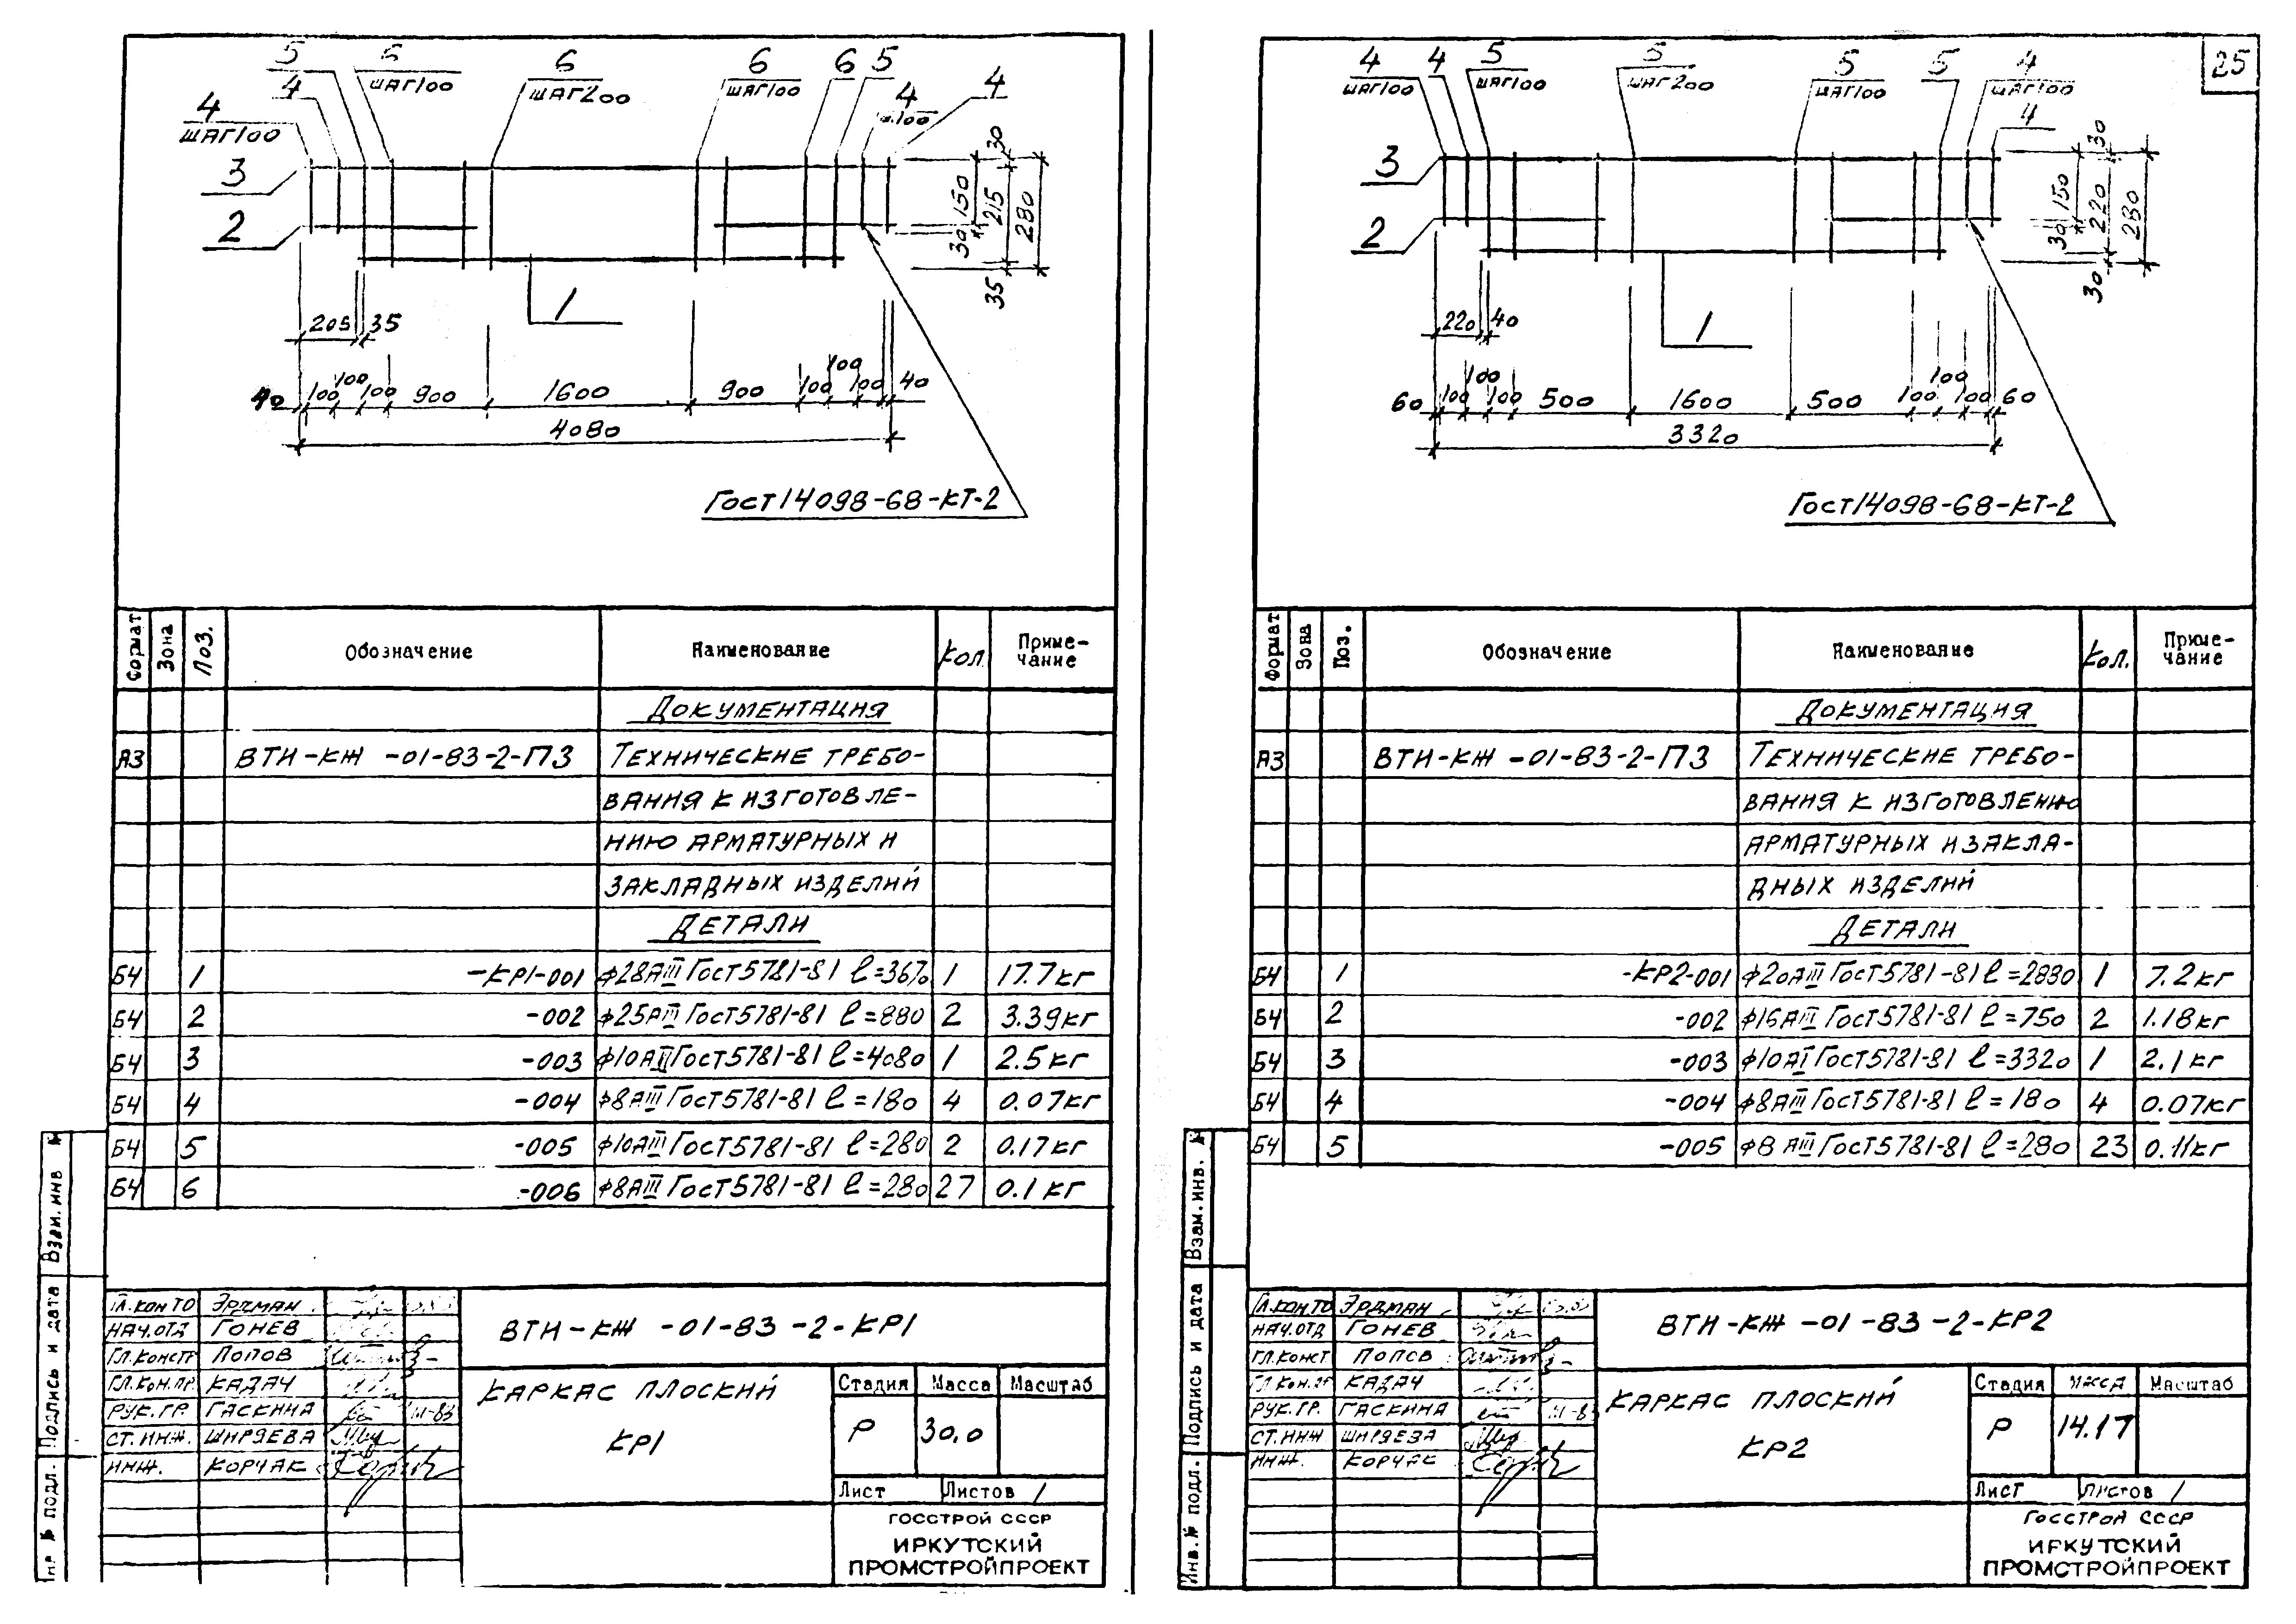 5
5
ШАГ100
6
ШАГ200
6
ШАГ100
6
5
4
4
ШАГ100
4
4
3
2
1
30
150
215
280
30
35
205
35
40
100
100
100
900
1600
900
100
100
100
40
4080
ГОСТ14098-68-КТ-2
Формат
Зона
Поз.
Обозначение
Наименование
Кол.
Приме-
чание
Документация
А3 ВТИ-КЖ -01-83-2-ПЗ Технические требо-
вания к изготовле-
нию арматурных и
закладных изделий
Детали
Б4 1 -КР1-001 ф28АIII ГОСТ5781-81 l=3670 1 17.7кг
Б4 2 -002 ф25АIII ГОСТ5781-81 l=880 2 3.39кг
Б4 3 -003 ф10АIII ГОСТ5781-81 l=4080 1 2.5кг
Б4 4 -004 ф8АIII ГОСТ5781-81 l=180 4 0.07кг
Б4 5 -005 ф10АIII ГОСТ5781-81 l=280 2 0.17кг
Б4 6 -006 ф8АIII ГОСТ5781-81 l=280 27 0.1кг
Взам.инв №
Подпись и дата
№ подл.
Гл.кон ТО Эрдман
Нач.отд Гонев
Гл.констр Попов
Гл.кон.пр. Кадач
Рук.гр. Гаскина III-83
Ст.инж. Ширяева
Инж. Корчак
ВТИ-КЖ -01-83-2-КР1
Каркас плоский
КР1
Стадия Масса Масштаб
Р 30,0
Лист Листов 1
ГОССТРОЙ СССР
ИРКУТСКИЙ
ПРОМСТРОЙПРОЕКТ
25
4
ШАГ100
4
5
ШАГ100
5
ШАГ200
5
ШАГ100
5
4
ШАГ100
4
3
2
1
30
150
220
280
30
30
220
40
60
100
100
100
500
1600
500
100
100
100
60
3320
ГОСТ14098-68-КТ-2
Формат
Зона
Поз.
Обозначение
Наименование
Кол.
Приме-
чание
Документация
А3 ВТИ-КЖ -01-83-2-ПЗ Технические требо-
вания к изготовлению
арматурных и закла-
дных изделий
Детали
Б4 1 -КР2-001 ф20АIII ГОСТ5781-81 l=2830 1 7.2кг
Б4 2 -002 ф16АIII ГОСТ5781-81 l=750 2 1.18кг
Б4 3 -003 ф10АI ГОСТ5781-81 l=3320 1 2.1кг
Б4 4 -004 ф8АIII ГОСТ5781-81 l=180 4 0.07кг
Б4 5 -005 ф8 АIII ГОСТ5781-81 l=280 23 0.11кг
Взам.инв. №
Подпись и дата
Инв.№ подл.
Гл.кон.ТО Эрдман
Нач.отд Гонев
Гл.конст Попов
Гл.кон.пр Кадач
Рук.гр. Гаскина
Ст.инж Ширяева
Инж. Корчак
ВТИ-КЖ -01-83-2-КР2
Каркас плоский
КР2
Стадия Масса Масштаб
Р 14.17
Лист Листов 1
ГОССТРОЙ СССР
ИРКУТСКИЙ
ПРОМСТРОЙПРОЕКТ